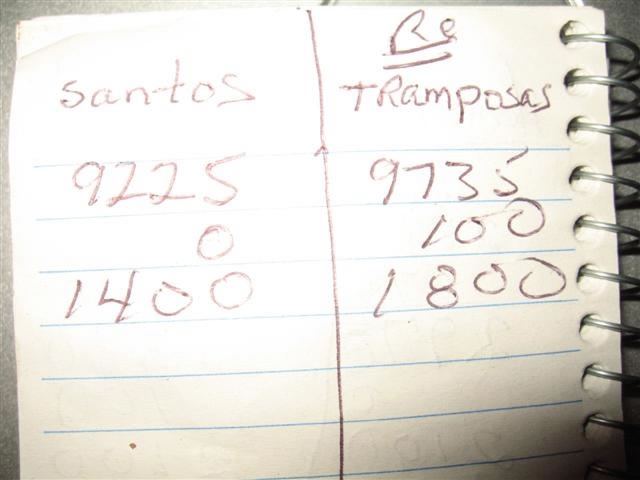 Re
santos TRamposas
9225 9735
0 100
1400 1800